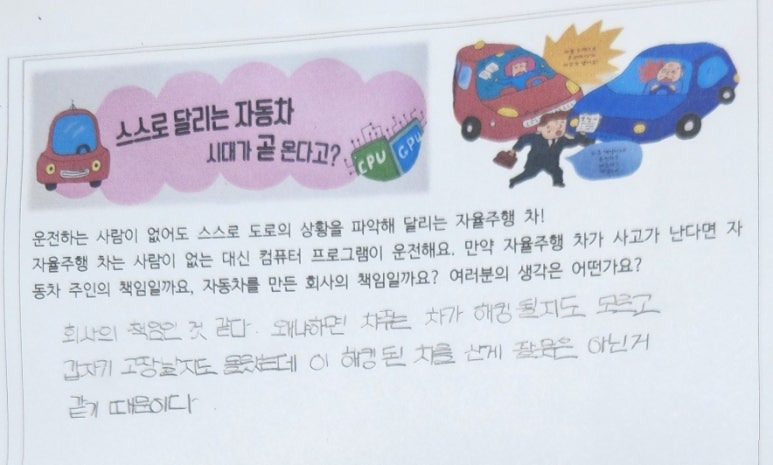 스스로 달리는 자동차
시대가 곧 온다고?
CPU
GPU
운전하는 사람이 없어도 스스로 도로의 상황을 파악해 달리는 자율주행 차!
자율주행 차는 사람이 없는 대신 컴퓨터 프로그램이 운전해요. 만약 자율주행 차가 사고가 난다면 자
동차 주인의 책임일까요, 자동차를 만든 회사의 책임일까요? 여러분의 생각은 어떤가요?
회사의 책임인 것 같다. 왜냐하면 차주는 차가 해킹 될지도 모르고
갑자기 고장날지도 몰랐는데 이 해킹 된 차를 산게 잘못은 아닌거
같기 때문이다